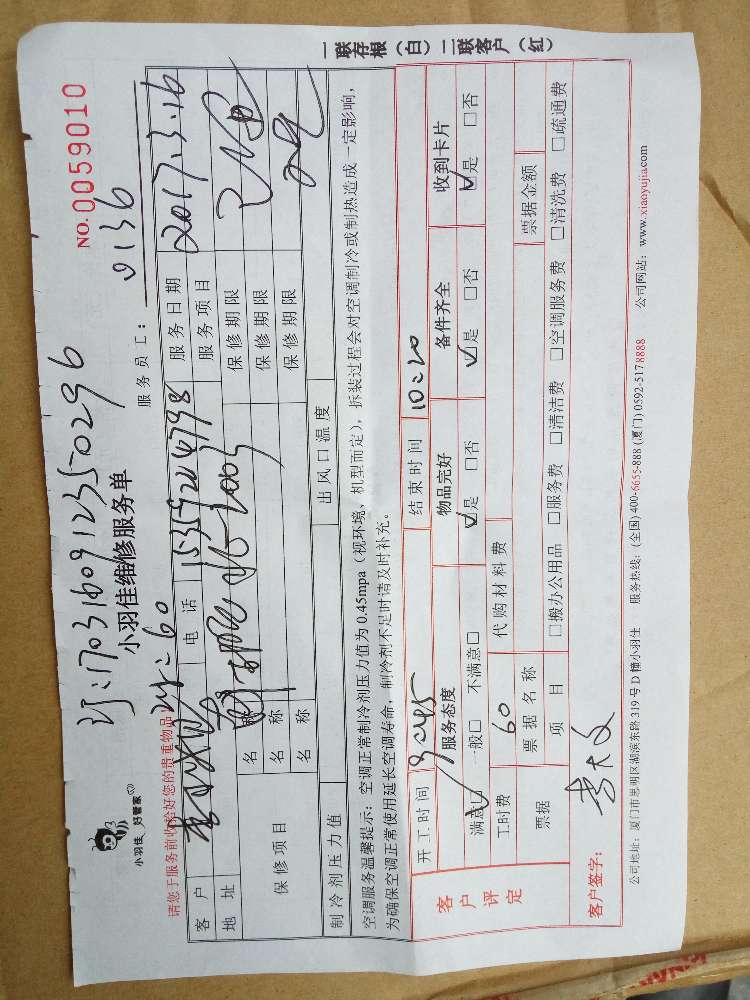 一联存根（白）二联客户（红）
NO.0059010
订：170316091235-0296
小羽佳维修服务单
小羽佳 好管家
服务员工： 0136
请您于服务前收拾好您的贵重物品
60
客户 电话 服务日期 2017.3.16
地址 服务项目
保修项目 名称 保修期限
名称 保修期限
名称 保修期限
制冷剂压力值 出风口温度
空调服务温馨提示：空调正常制冷剂压力值为0.45mpa（视环境、机型而定），拆装过程会对空调制冷或制热造成一定影响，
为确保空调正常使用延长空调寿命，制冷剂不足时请及时补充。
开工时间 9:45 结束时间 10:20
客户评定 服务态度 物品完好 备件齐全 收到卡片
满意☑ 一般□ 不满意□ ☑是 □否 ☑是 □否 ☑是 □否
工时费 60 代购材料费
票据 票据名称 票据金额
项目 □搬办公用品 □服务费 □清洁费 □空调服务费 □清洗费 □疏通费
客户签字：
公司地址：厦门市思明区湖滨东路319号D幢小羽佳 服务热线：(全国) 400-6655-888 (厦门) 0592-5178888 公司网站：www.xiaoyujia.com